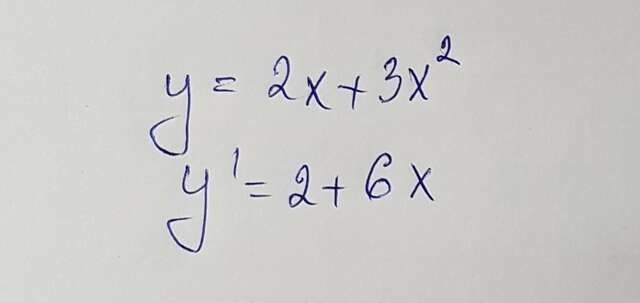 y = 2x + 3x²
y' = 2 + 6x